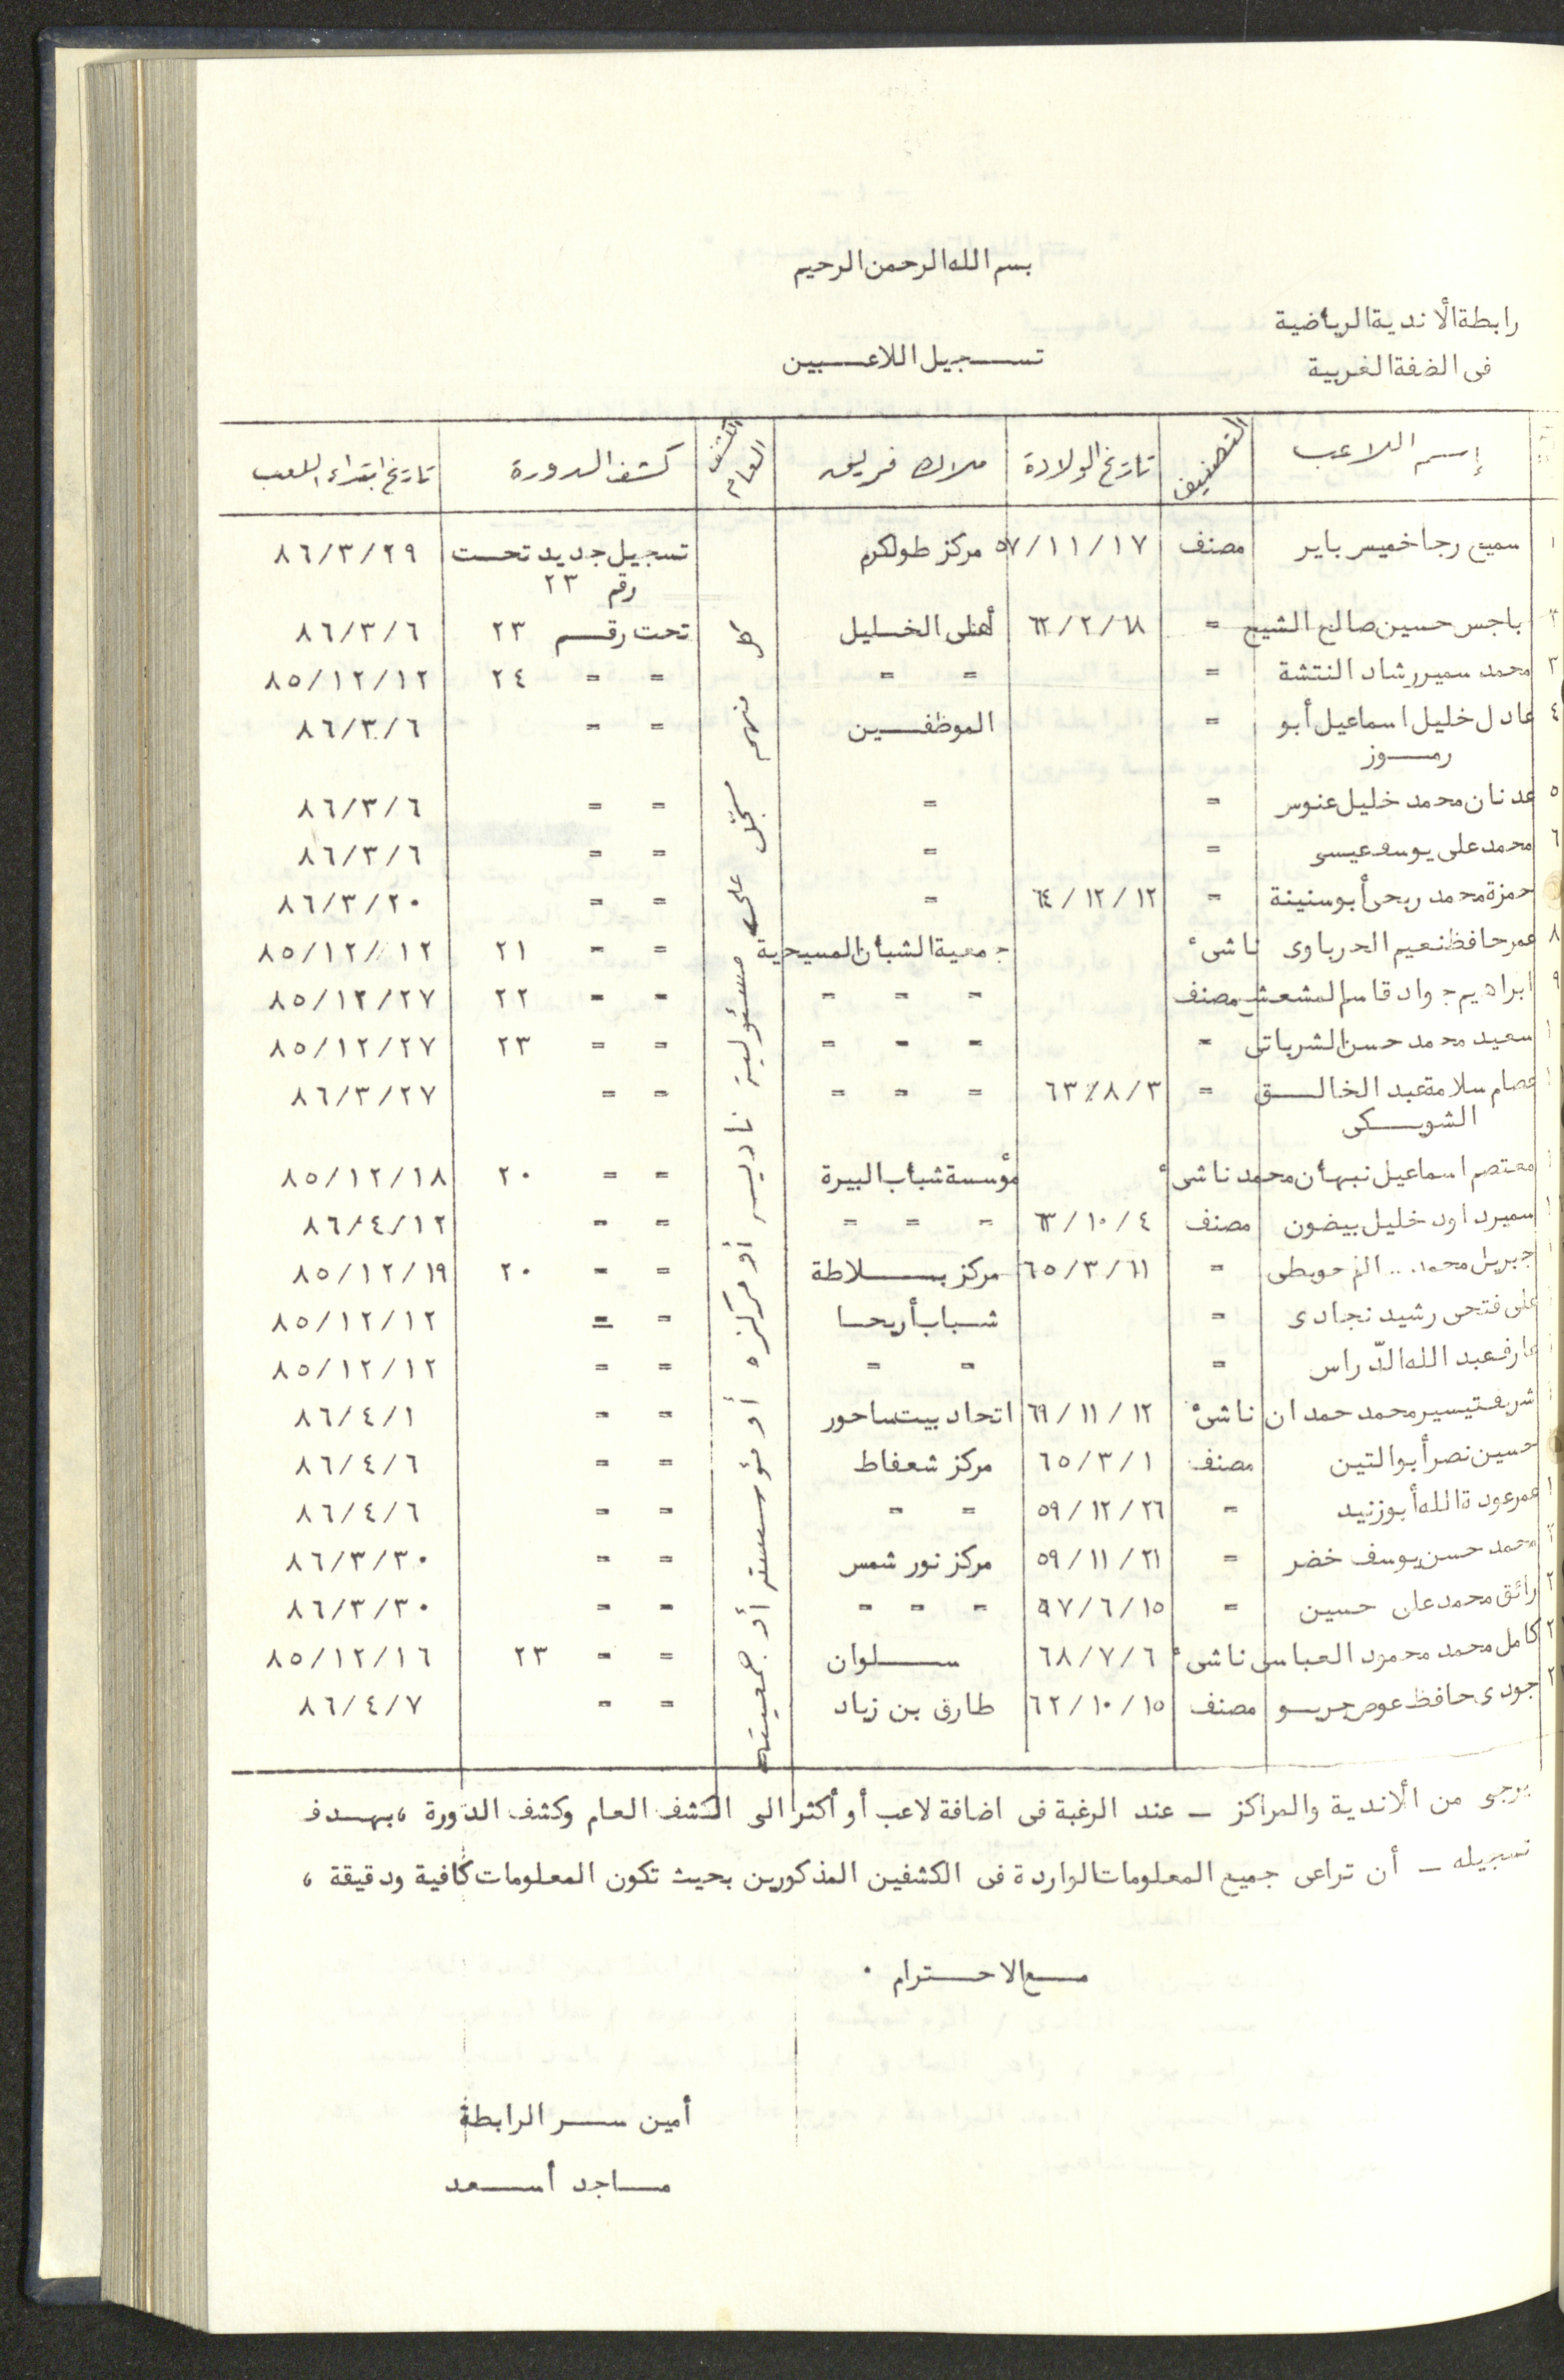 بسم الله الرحمن الرحيم
رابطة الأندية الرياضية
فى الضفة الغربية
تسجيل اللاعبين
إسم اللاعب التصنيف تاريخ الولادة ملاك فريق الكشف العام كشف الدورة تاريخ ابتداء اللعب
١ سميح رجا خميس باير مصنف ٥٧/١١/١٧ مركز طولكرم تسجيل جديد تحت ٨٦/٣/٢٩
رقم ٢٣
٢ باجس حسين صالح الشيخ = ٦٢/٢/١٨ أهلى الخليل تحت رقم ٢٣ ٨٦/٣/٦
٣ محمد سمير رشاد النتشة = = = = = ٢٤ ٨٥/١٢/١٢
٤ عادل خليل اسماعيل أبو = الموظفين = = ٨٦/٣/٦
رموز
٥ عدنان محمد خليل عنوس = = = = ٨٦/٣/٦
٦ محمد على يوسف عيسى = = = = ٨٦/٣/٦
حمزة محمد ربحى أبو سنينة = ٦٤/١٢/١٢ = = = ٨٦/٣/٢٠
٨ عمر حافظ نعيم الحرباوى ناشئ جمعية الشبان المسيحية = = ٢١ ٨٥/١٢/١٢
٩ ابراهيم جواد قاسم المشعشع مصنف = = = = = ٢٢ ٨٥/١٢/٢٧
سعيد محمد حسن الشرباتى = = = = = = ٢٣ ٨٥/١٢/٢٧
عصام سلامة عبد الخالق = ٦٣/٨/٣ = = = = = ٨٦/٣/٢٧
الشويكى
معتصم اسماعيل نبهان محمد ناشئ مؤسسة شباب البيرة = = ٢٠ ٨٥/١٢/١٨
سمير داود خليل بيضون مصنف ٦٣/١٠/٤ = = = = = ٨٦/٤/١٢
جبريل محمد .. = ٦٥/٣/١١ مركز بلاطة = = ٢٠ ٨٥/١٢/١٩
على فتحى رشيد نجادى = شباب أريحا = = ٨٥/١٢/١٢
عارف عبد الله الدّراس = = = = = ٨٥/١٢/١٢
شريف تيسير محمد حمدان ناشئ ٦٩/١١/١٢ اتحاد بيت ساحور = = ٨٦/٤/١
حسين نصر أبو التين مصنف ٦٥/٣/١ مركز شعفاط = = ٨٦/٤/٦
عمر عودة الله أبو زنيد = ٥٩/١٢/٢٦ = = = = ٨٦/٤/٦
محمد حسن يوسف خضر = ٥٩/١١/٢١ مركز نور شمس = = ٨٦/٣/٣٠
رائق محمد على حسين = ٦٧/٦/١٥ = = = = = ٨٦/٣/٣٠
كامل محمد محمود العباسى ناشئ ٦٨/٧/٦ سلوان = = ٢٣ ٨٥/١٢/١٦
جودى حافظ عوض مصنف ٦٢/١٠/١٥ طارق بن زياد = = ٨٦/٤/٧
كل منهم مسجّل على مسئولية ناديه أو مركزه أو مؤسسته أو جمعيته
يرجى من الأندية والمراكز - عند الرغبة فى اضافة لاعب أو أكثر الى الكشف العام وكشف الدورة ، بهدف
تسجيله - أن تراعى جميع المعلومات الواردة فى الكشفين المذكورين بحيث تكون المعلومات كافية ودقيقة ،
مع الاحترام .
أمين سر الرابطة
ماجد أسعد